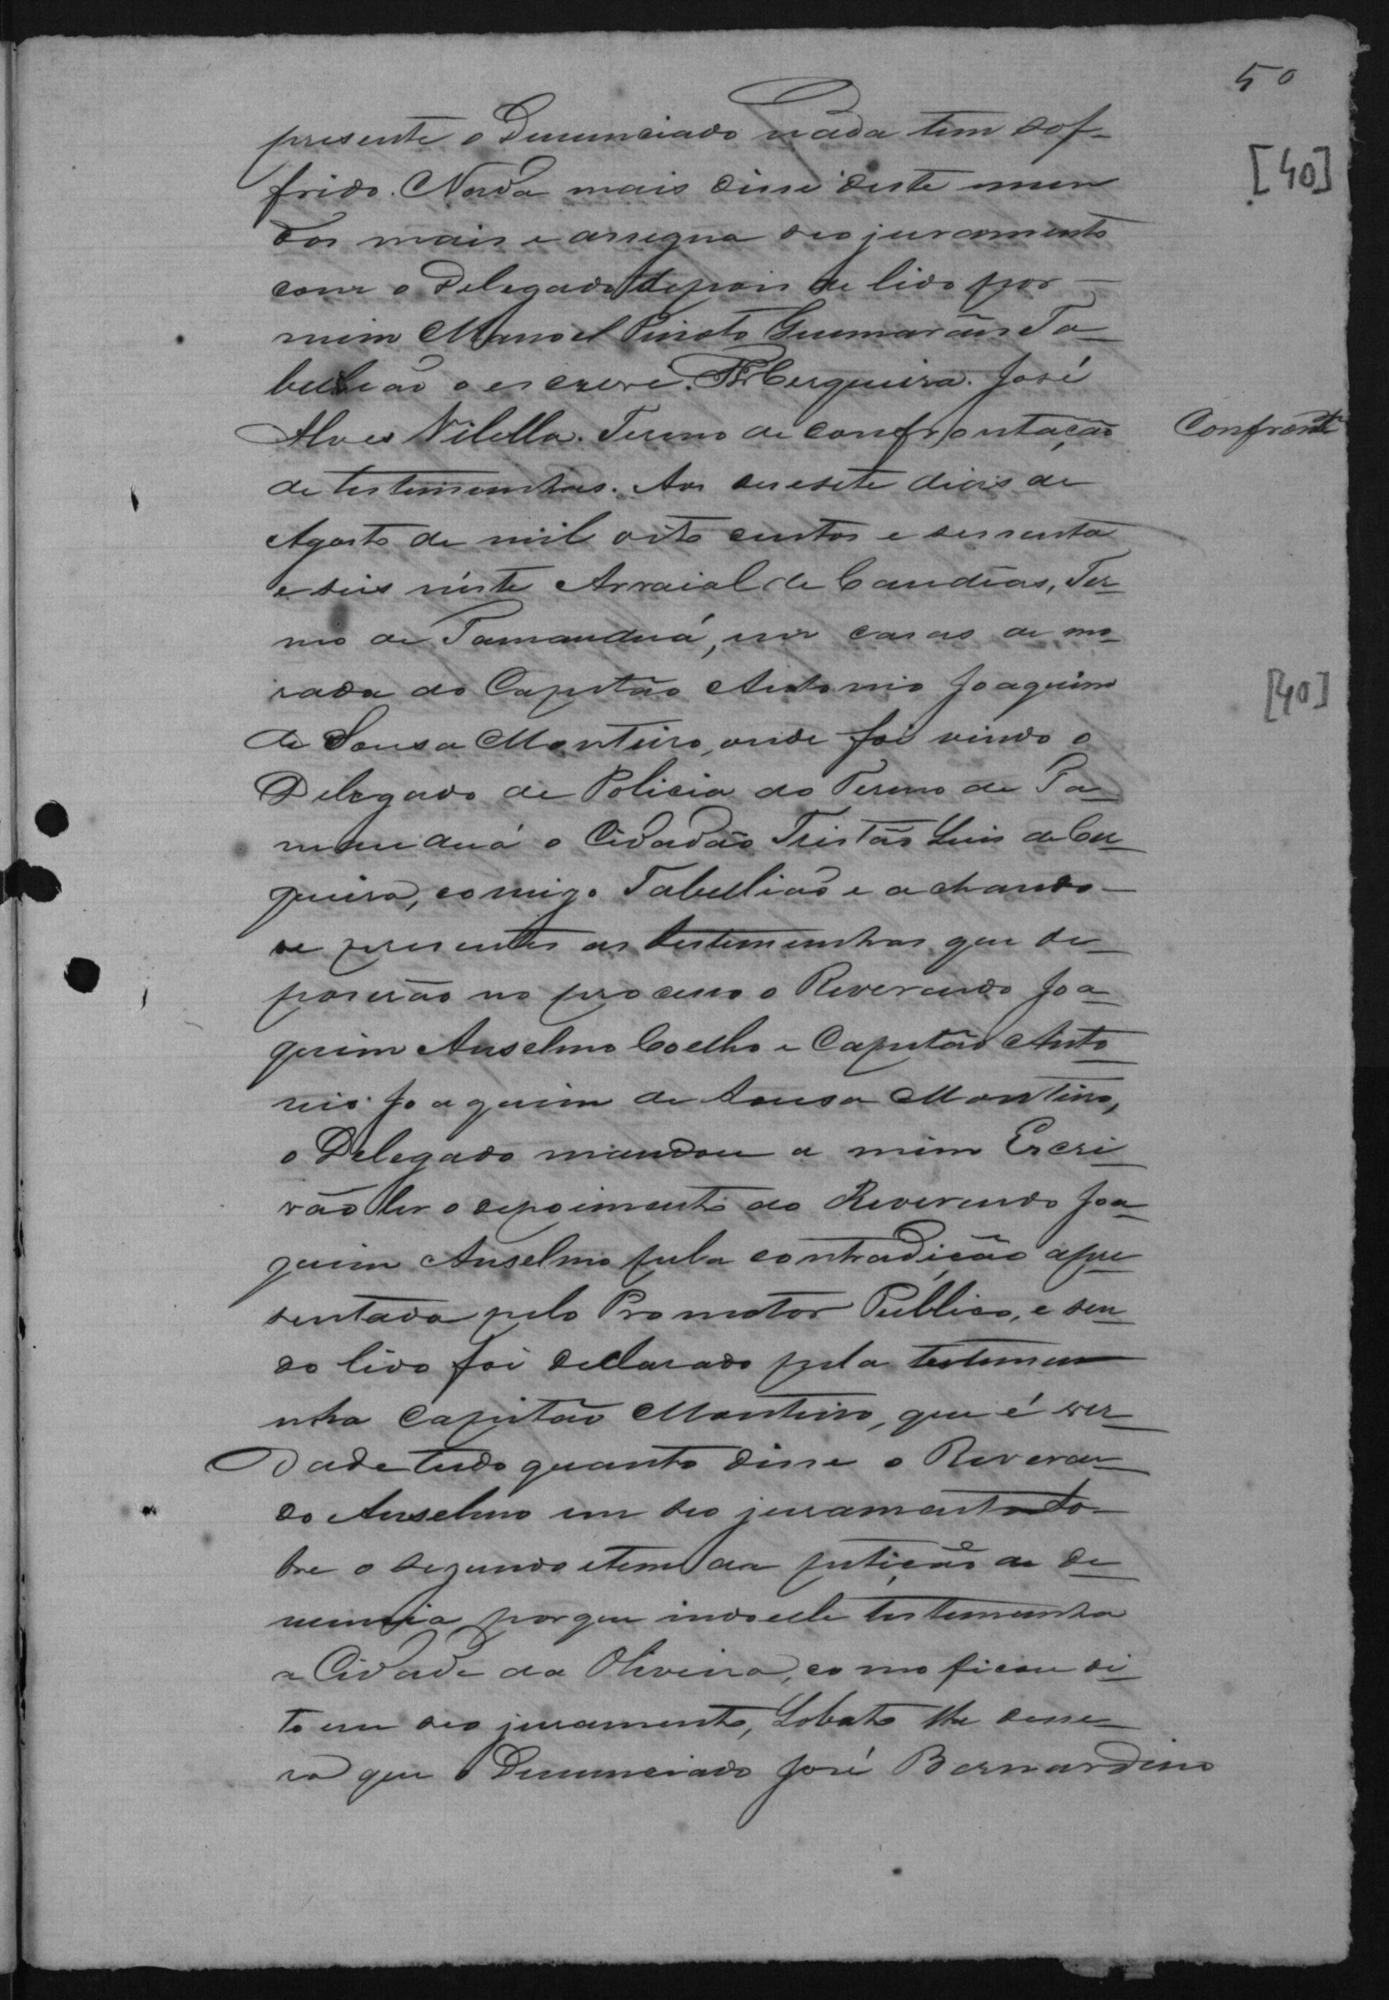 50
presente o Denunciado nada tem sof-
frido. Nada mais disse deste nem
dos mais e assegna seo juramento
com o Delegado depois de lido por
mim Manoel Pinoto Guimarães Ta-
bellião o escrevi. Cerqueira. José
Alves Vilella. Termo de confrontação
Confront
de testemunhas. Aos desesete dias de
Agosto de mil oito centos e sessenta
e seis n'este Arraial de Candêas, Ter-
mo de Tamanduá, em casas de mo-
rada do Capitão Antonio Joaquim
de Sousa Monteiro, onde foi vindo o
Delegado de Policia do Termo de Ta-
manduá o Cidadão Tristão Luis de Cer-
queira, comigo Tabellião e achando-
se presentes as testemunhas que de-
poserão no processo o Reverendo Joa-
quim Anselmo Coelho e Capitão Anto-
nio Joaquim de Sousa Monteiro,
o Delegado mandou a mim Escri-
vão ler o depoimento do Reverendo Joa-
quim Anselmo pela contradição apre-
sentada pelo Promotor Publico, e sen-
do lido foi declarado pela testemu-
nha Capitão Monteiro, que é ver-
dade tudo quanto disse o Reveren-
do Anselmo em seo juramento so-
bre o segundo item da petição de de-
nuncia porque indo elle testemunha
a Cidade da Oliveira, como ficou di-
to em seo juramento, Lobato lhe disse-
ra que o Denunciado José Bernardino
[40]
[40]